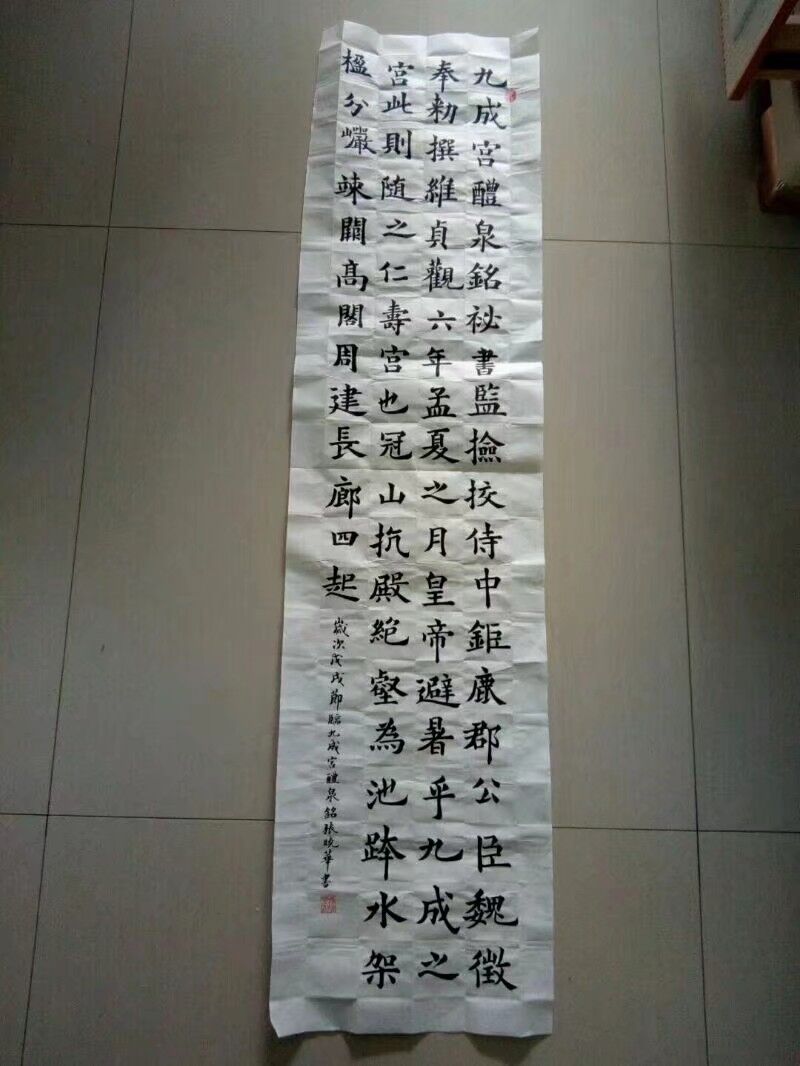 九成宮醴泉銘祕書監撿挍侍中鉅鹿郡公臣魏徵
奉勑撰維貞觀六年孟夏之月皇帝避暑乎九成之
宮此則随之仁壽宮也冠山抗殿絕壑為池跨水架
楹分巗竦闕高閣周建長廊四起
歲次戊戌節臨九成宮醴泉銘張晓華書